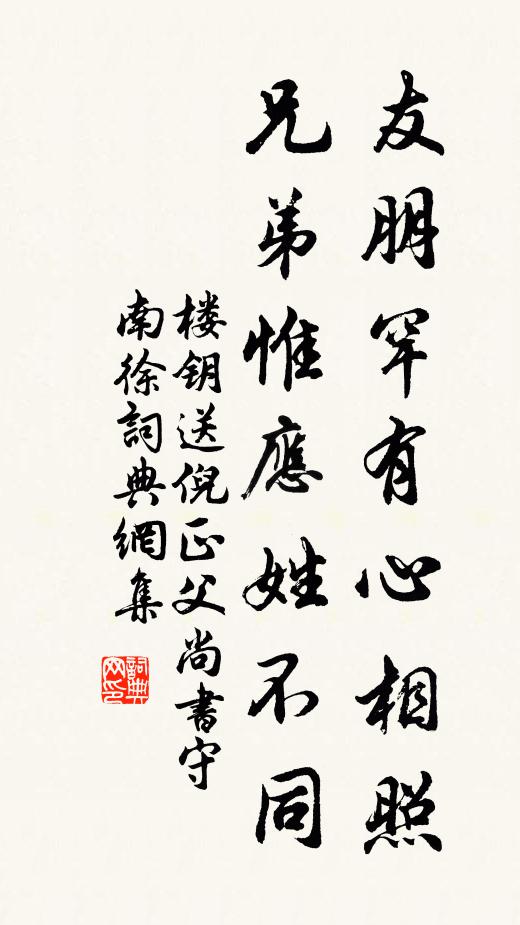 友朋罕有心相照
兄弟惟應姓不同
楼钥送倪正父尚書守
南徐詞典網集
詞典
网印